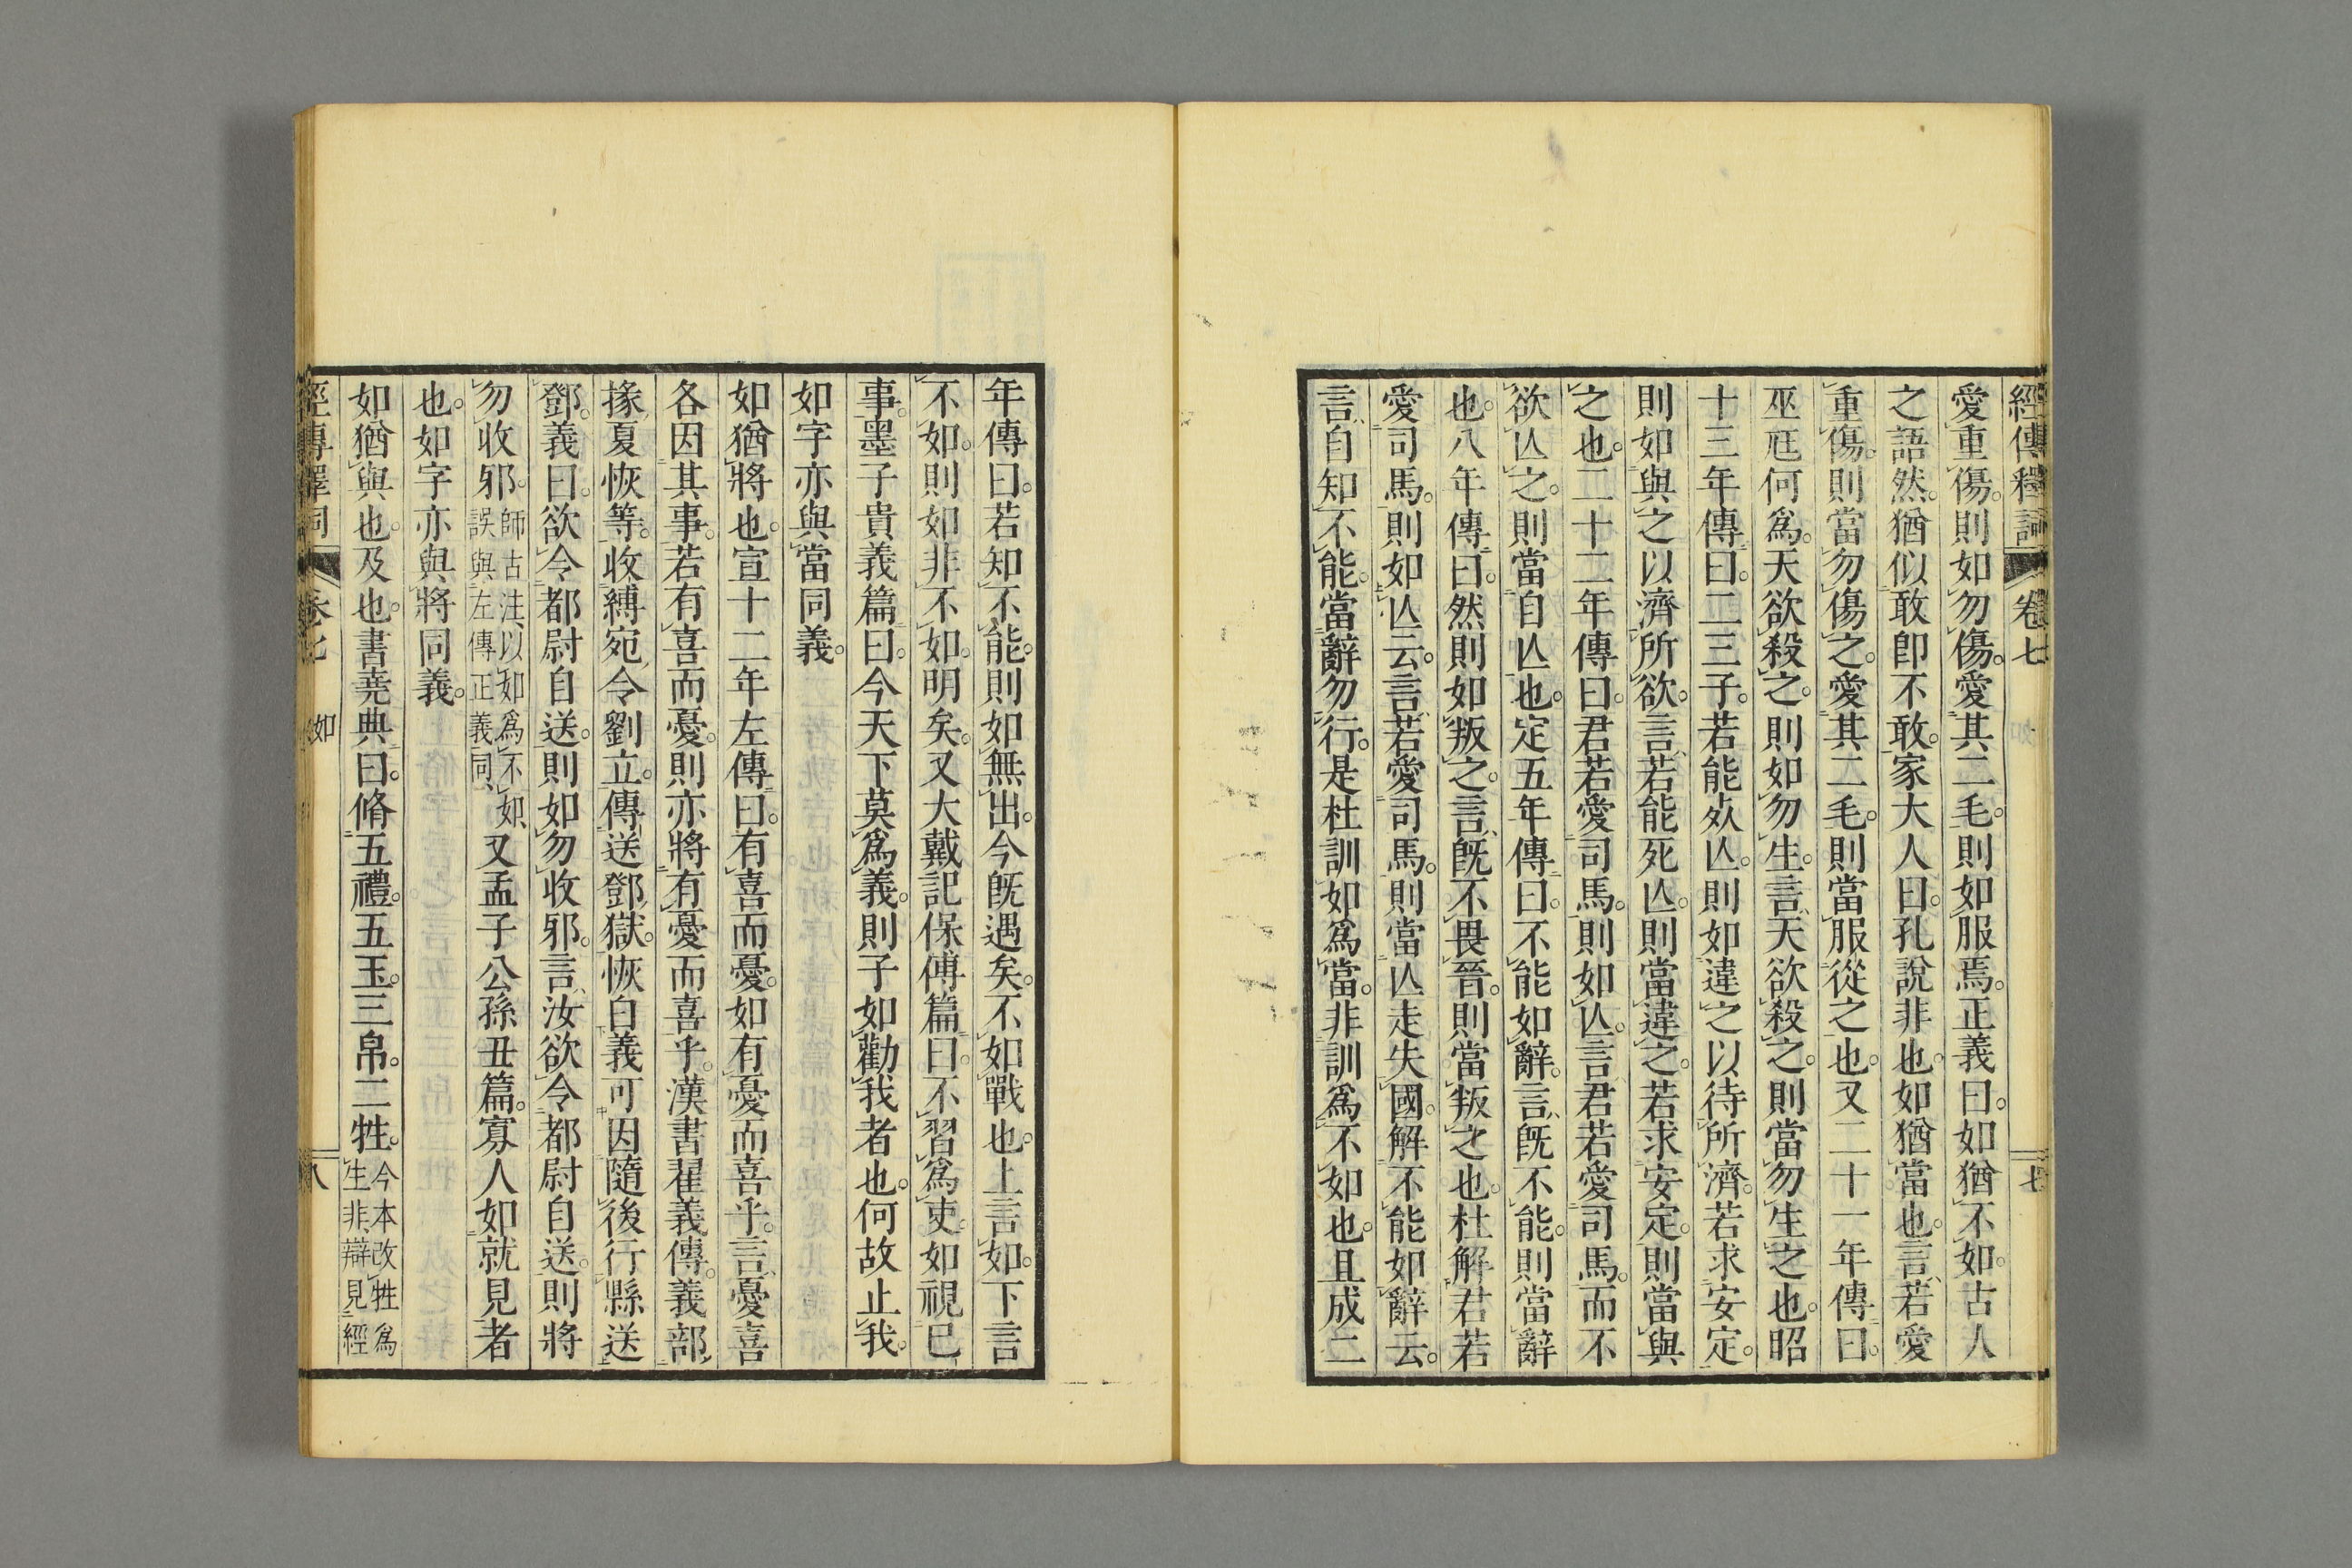 經傳釋詞 卷七 七
愛重傷。則如勿傷。愛其二毛。則如服焉。正義曰。如猶不如。古人
之語然。猶似敢卽不敢。家大人曰。孔說非也。如猶當也。言、若愛
重傷。則當勿傷之。愛其二毛。則當服從之也。又二十一年傳曰。
巫尫何爲。天欲殺之。則如勿生。言、天欲殺之。則當勿生之也。昭
十三年傳曰。二三子。若能死亾。則如違之以待所濟。若求安定。
則如與之以濟所欲。言、若能死亾。則當違之。若求安定。則當與
之也。二十二年傳曰。君若愛司馬。則如亾。言君若愛司馬。而不
欲亾之。則當自亾也。定五年傳曰。不能如辭。言、旣不能。則當辭
也。八年傳曰。然則如叛之。言、旣不畏晉。則當叛之也。杜解君若
愛司馬。則如亾云。言、若愛司馬。則當亾走失國。解不能如辭云。
言、自知不能。當辭勿行。是杜訓如爲當。非訓爲不如也。且成二
年傳曰。若知不能。則如無出。今旣遇矣。不如戰也。上言如。下言
不如。則如非不如。明矣。又大戴記保傅篇曰。不習爲吏。如視已
事。墨子貴義篇曰。今天下莫爲義。則子如勸我者也。何故止我。
如字亦與當同義。
如猶將也。宣十二年左傳曰。有喜而憂。如有憂而喜乎。言、憂喜
各因其事。若有喜而憂。則亦將有憂而喜乎。漢書翟義傳。義部
掾夏恢等。收縛宛令劉立。傳送鄧獄。恢白義可因隨後行縣送
鄧。義曰。欲令都尉自送。則如勿收邪。言、汝欲令都尉自送。則將
勿收邪。師古注、以如爲不如、誤與左傳正義同、又孟子公孫丑篇。寡人如就見者
也。如字亦與將同義。
如猶與也。及也。書堯典曰。脩五禮。五玉。三帛。二牲。今本改牲爲生非辯見經
經傳釋詞 卷七 如 八